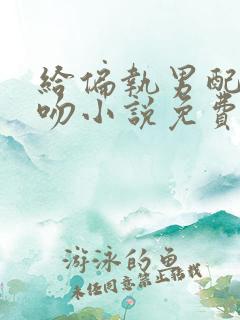 給偏執男配
吻小說免費
游泳的魚
未任同意禁止轉載